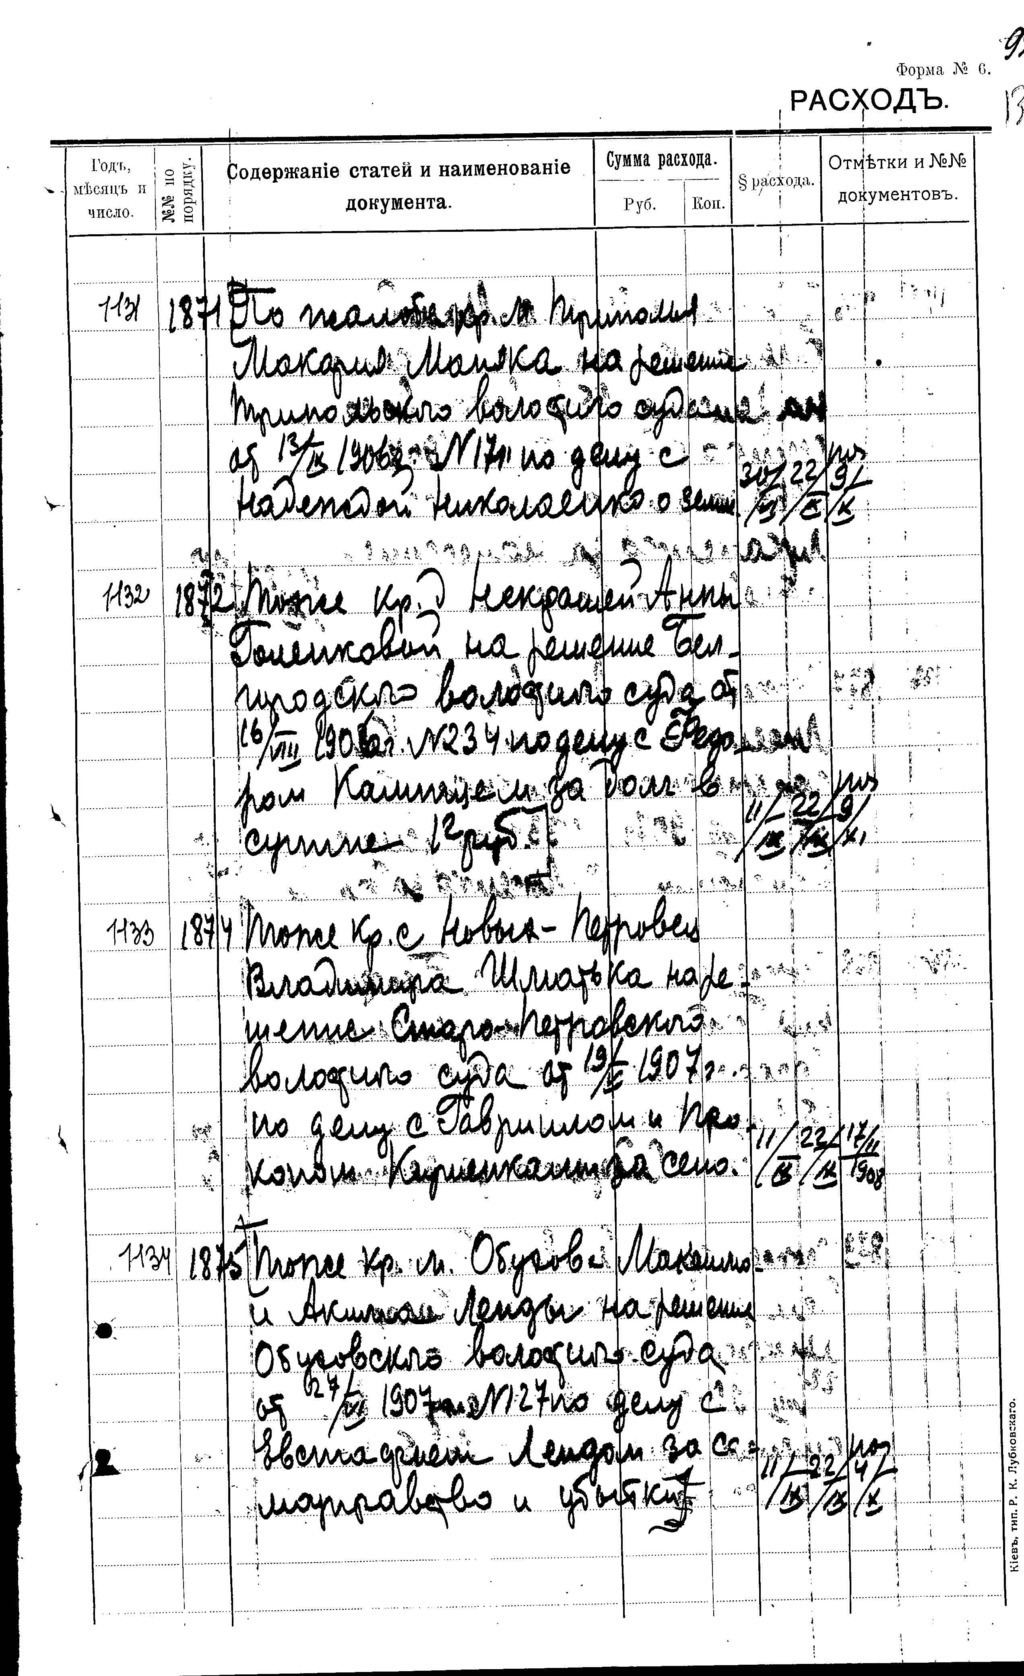 Форма № 6.
РАСХОДЪ.
Годъ, мѣсяцъ и число.
№№ по порядку.
Содержаніе статей и наименованіе документа.
Сумма расхода.
Руб.
Коп.
§ расхода.
Отмѣтки и №№ документовъ.
1131 1871 По жалобе кр. м. Триполья
Макария Маняка на решение
Трипольского волостного суда
от 13/IX 1906 г. N 17 по делу с
Надеждой Николаенко о земле
30/ 22/ 9/X
1132 1872 Тоже кр. д Некрашей Анны
Голенковой на решение Бел-
городского волостного суда от
16/VIII 1906 г. N 234 по делу с Федо-
ром Компацем за долг в
сумме 12 руб.
11/IX 22/IX 9/XI
1133 1874 Тоже кр. с Новых-Петровец
Владимира Шматька на ре-
шение Старо-Петровского
волостного суда от 19/ 1907 г.
по делу с Гавриилом и Про-
копом за сено.
11/IX 22/IX 17/II 1908
1134 1875 Тоже кр. м. Обухова Максима
и Ленды на решение
Обуховского волостного суда
от 27/ 1907 N 127 по делу с
Евстафием Лендом за са-
моуправство и убытки
11/IX 22/IX 4/X
Кіевъ, тип. Р. К. Лубковскаго.